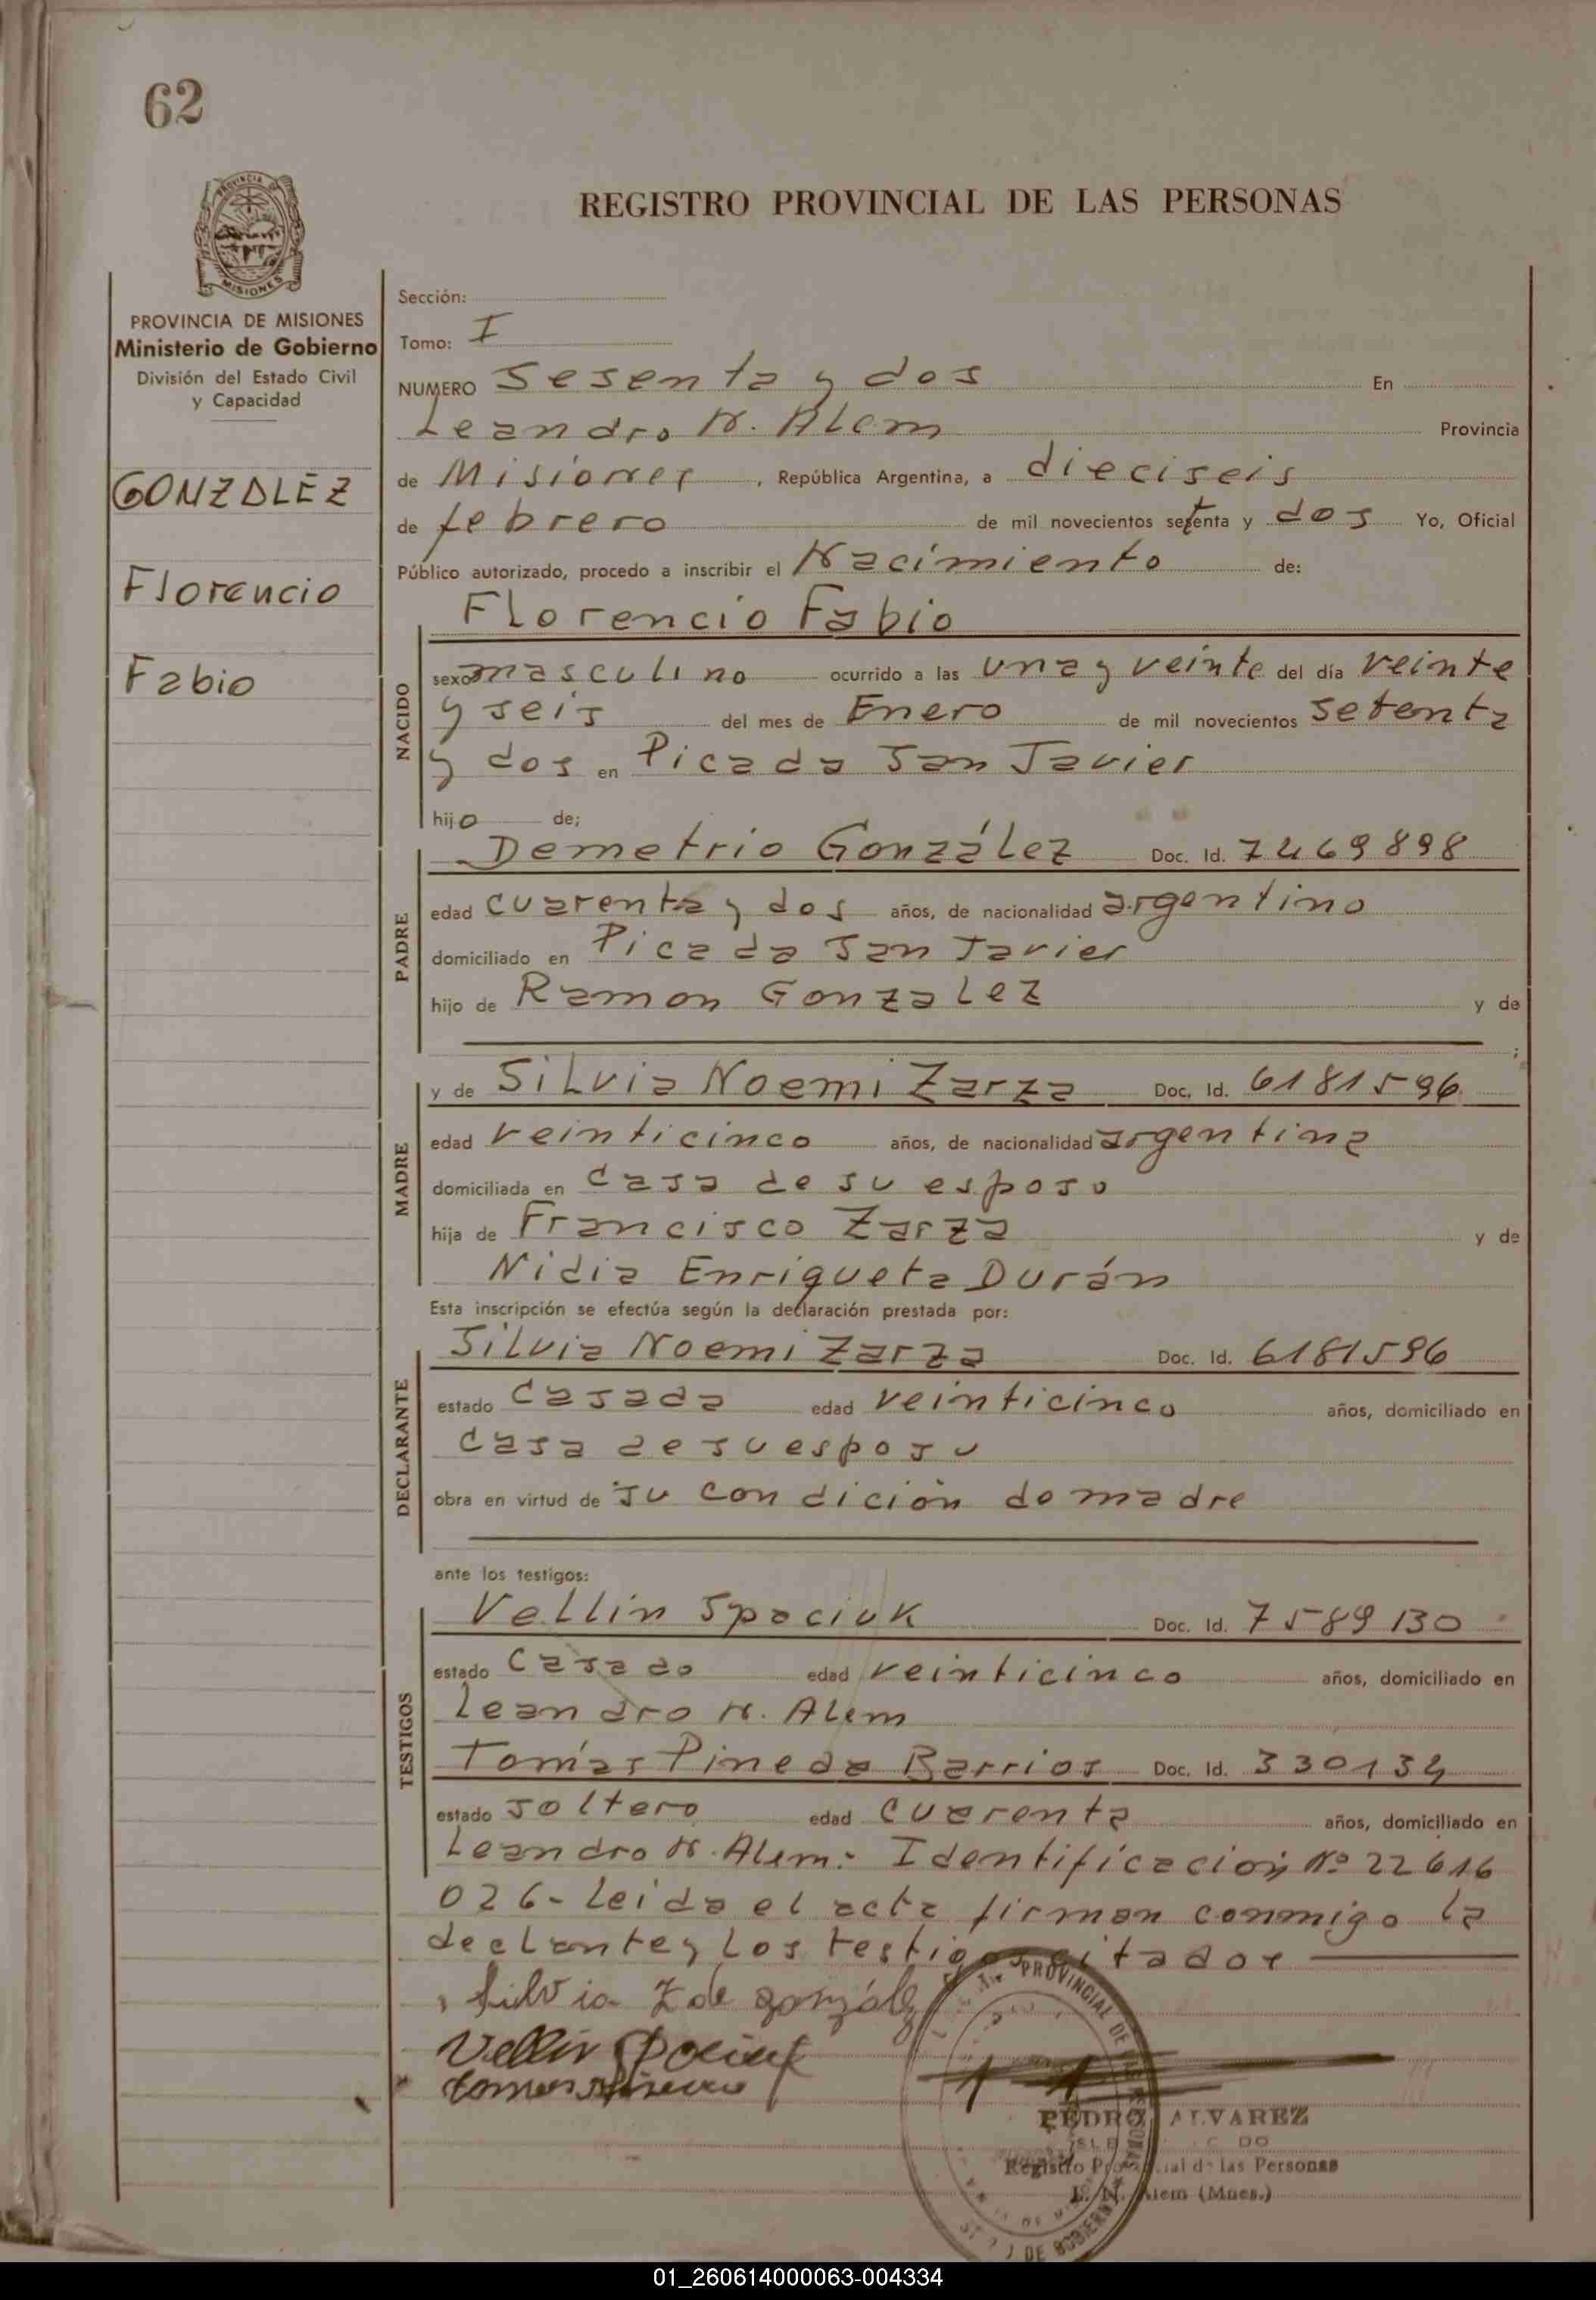 62
PROVINCIA DE
MISIONES
REGISTRO PROVINCIAL DE LAS PERSONAS
PROVINCIA DE MISIONES
Ministerio de Gobierno
División del Estado Civil
y Capacidad
GONZALEZ
Florencio
Fabio
Sección:
Tomo: I
NUMERO Sesenta y dos En
Leandro N. Alem Provincia
de Misiones, República Argentina, a dieciseis
de febrero de mil novecientos setenta y dos Yo, Oficial
Público autorizado, procedo a inscribir el Nacimiento de:
Florencio Fabio
NACIDO
sexo masculino ocurrido a las una y veinte del día veinte
y seis del mes de Enero de mil novecientos setenta
y dos en Picada San Javier
hijo de;
PADRE
Demetrio González Doc. Id. 7469898
edad cuarenta y dos años, de nacionalidad argentino
domiciliado en Picada San Javier
hijo de Ramon Gonzalez y de
;
MADRE
y de Silvia Noemi Zarza Doc. Id. 6181596
edad veinticinco años, de nacionalidad argentina
domiciliada en casa de su esposo
hija de Francisco Zarza y de
Nidia Enriqueta Durán
Esta inscripción se efectúa según la declaración prestada por:
DECLARANTE
Silvia Noemi Zarza Doc. Id. 6181596
estado casada edad veinticinco años, domiciliado en
casa de su esposo
obra en virtud de su condición de madre
ante los testigos:
TESTIGOS
Vellin Spaciuk Doc. Id. 7589130
estado casado edad veinticinco años, domiciliado en
Leandro N. Alem
Tomás Pineda Barrios Doc. Id. 330134
estado soltero edad cuarenta años, domiciliado en
Leandro N. Alem: Identificación Nº 22616
026- Leida el acta firman conmigo la
declante y los testigos citados
Silvia Z de González
Vellin Spaciuk
PROVINCIAL DE LAS PERSONAS
DE GOBIERNO
PEDRO ALVAREZ
Registro Provincial de las Personas
L. N. Alem (Mnes.)
01_260614000063-004334